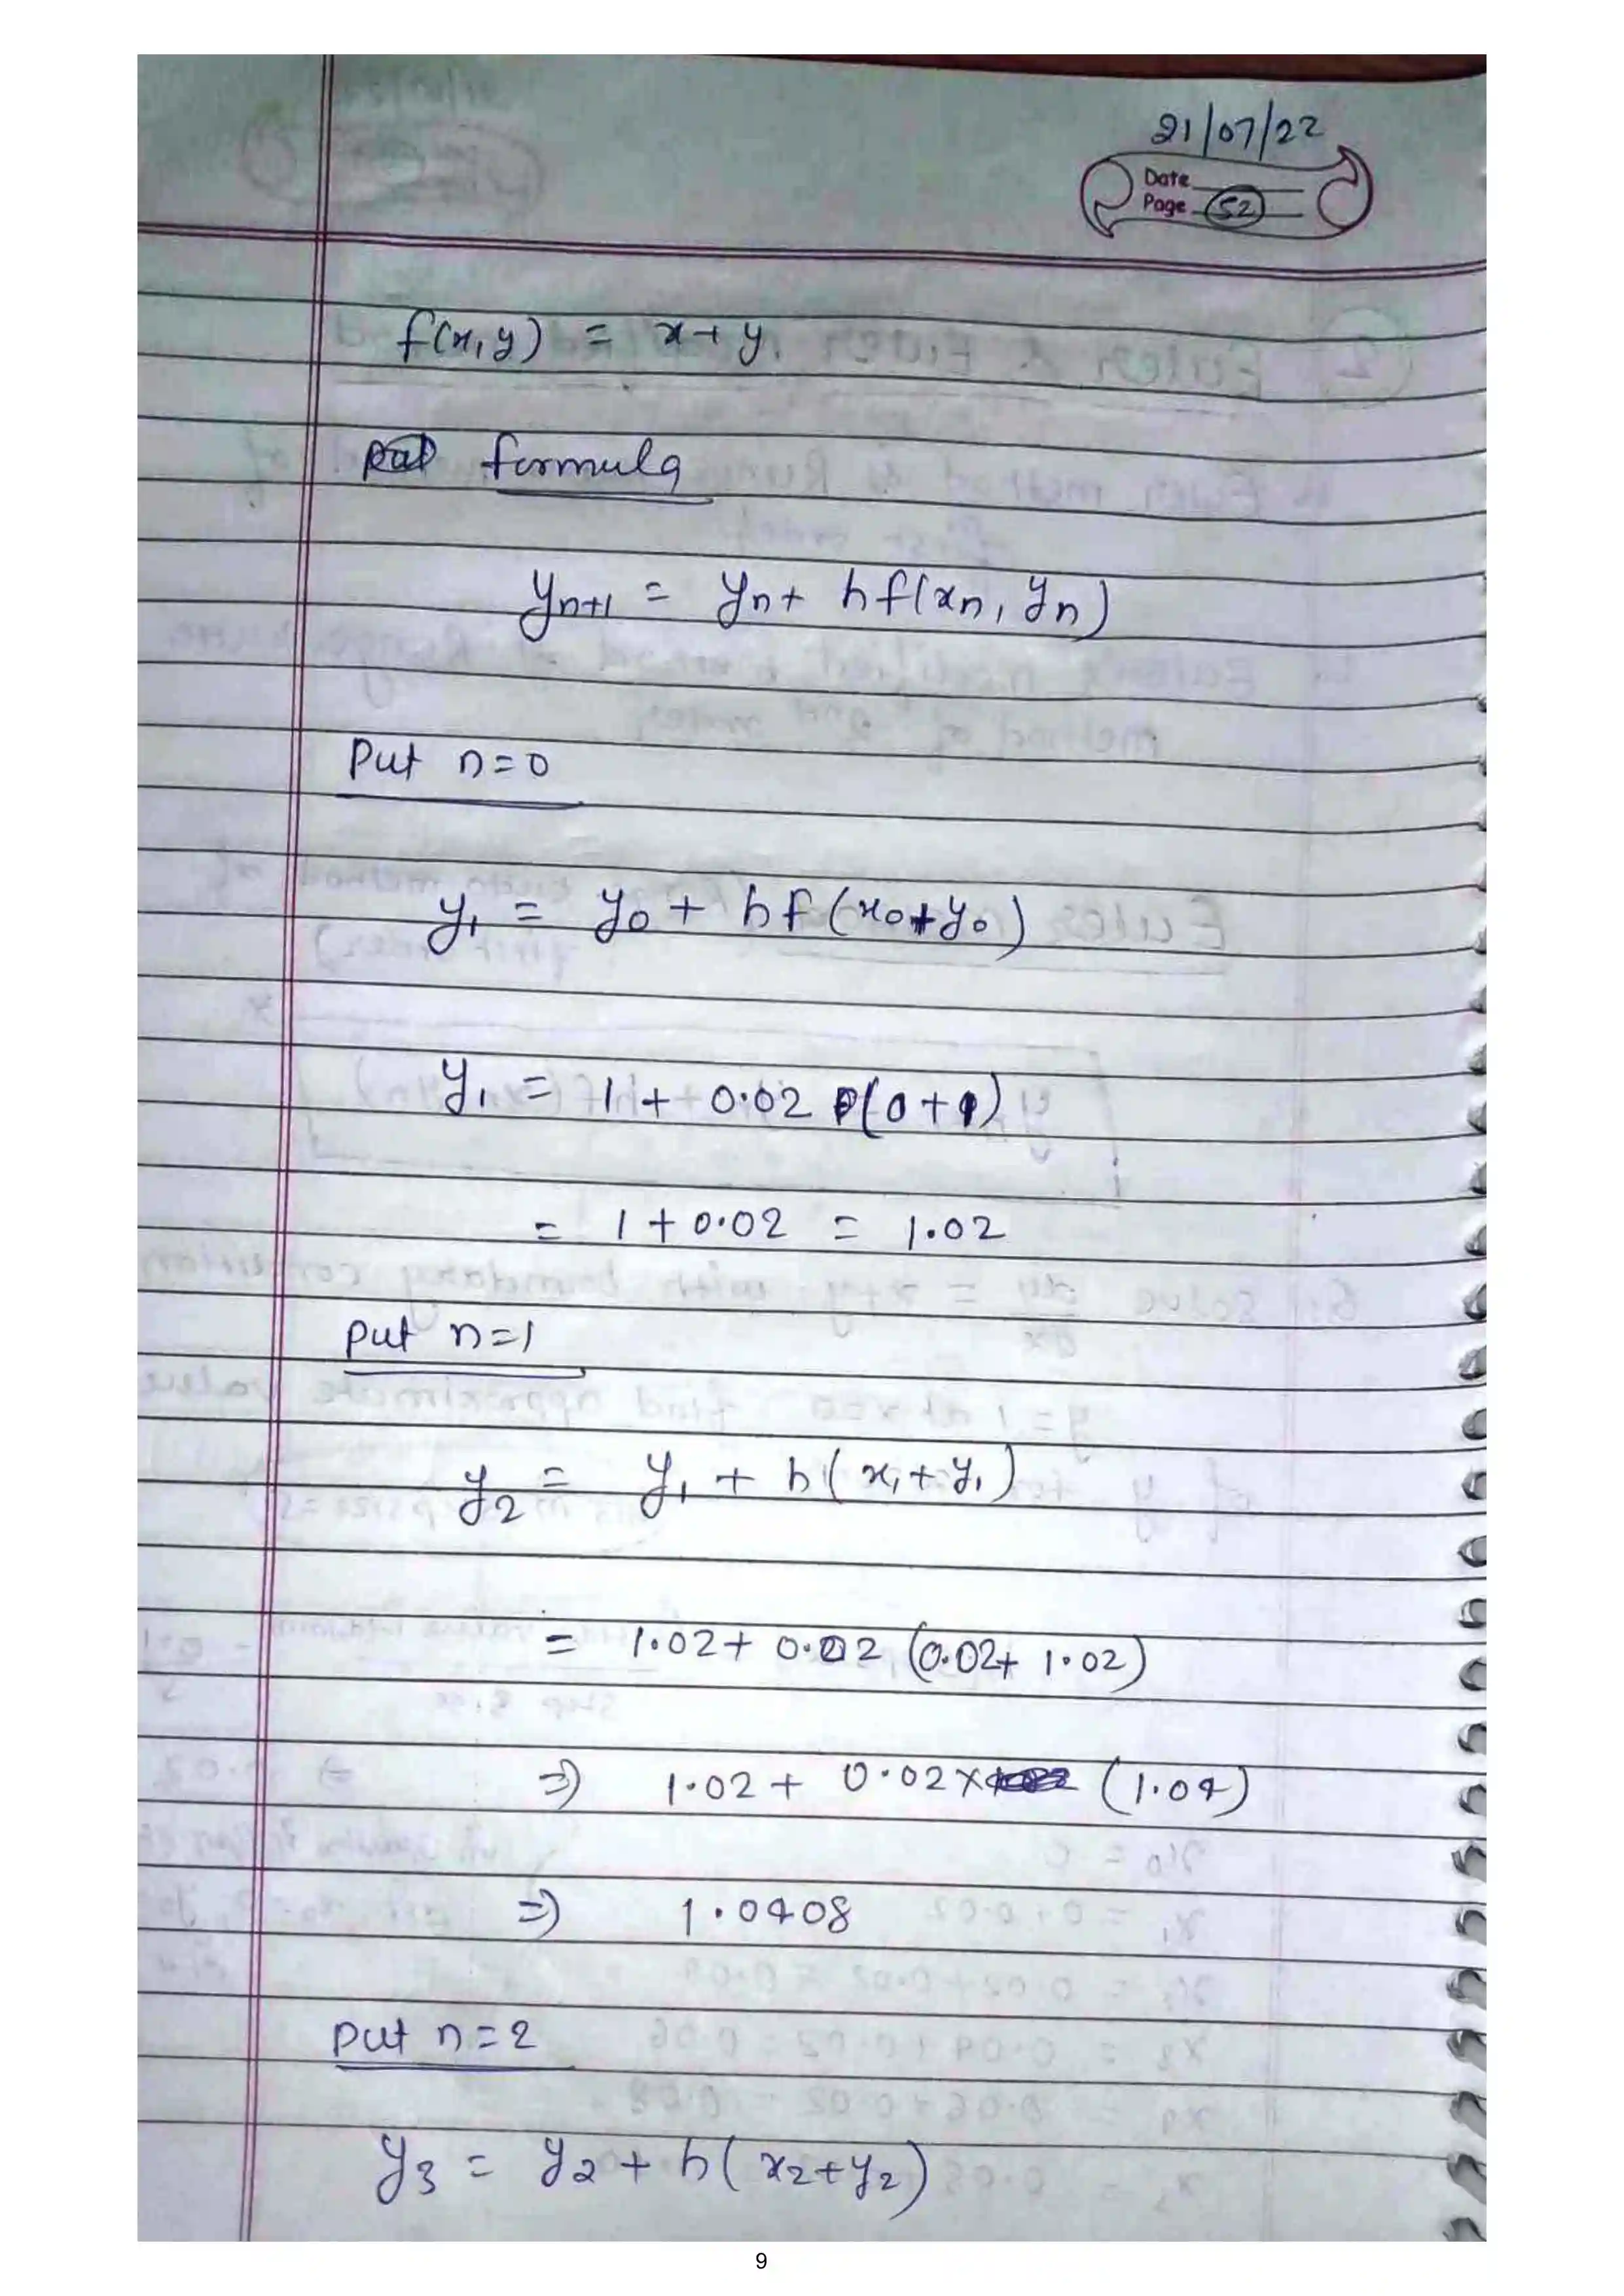 21/07/22
Date
Page 52
f(x,y) = x+y.
formula
yn+1 = yn + hf(xn, yn)
Put n=0
y1 = y0 + hf(x0+y0)
y1 = 1 + 0.02 (0+1)
= 1 + 0.02 = 1.02
put n=1
y2 = y1 + h(x1+y1)
= 1.02 + 0.02 (0.02+ 1.02)
⇒ 1.02 + 0.02× (1.04)
⇒ 1.0408
put n=2
y3 = y2 + h(x2+y2)
9